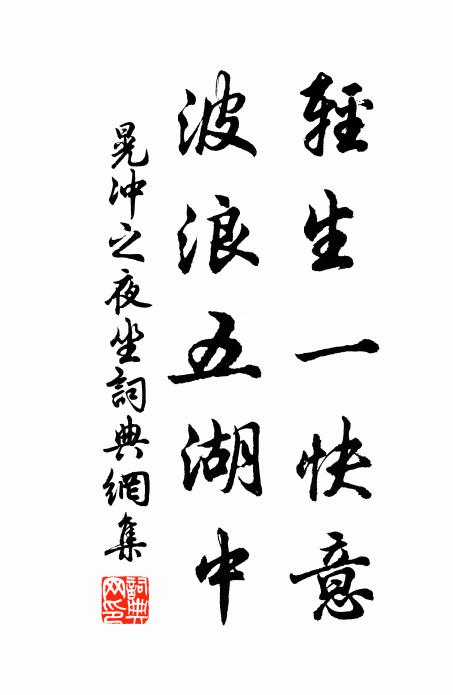 輕生一快意
波浪五湖中
晁沖之夜坐詞典網集
詞典網印